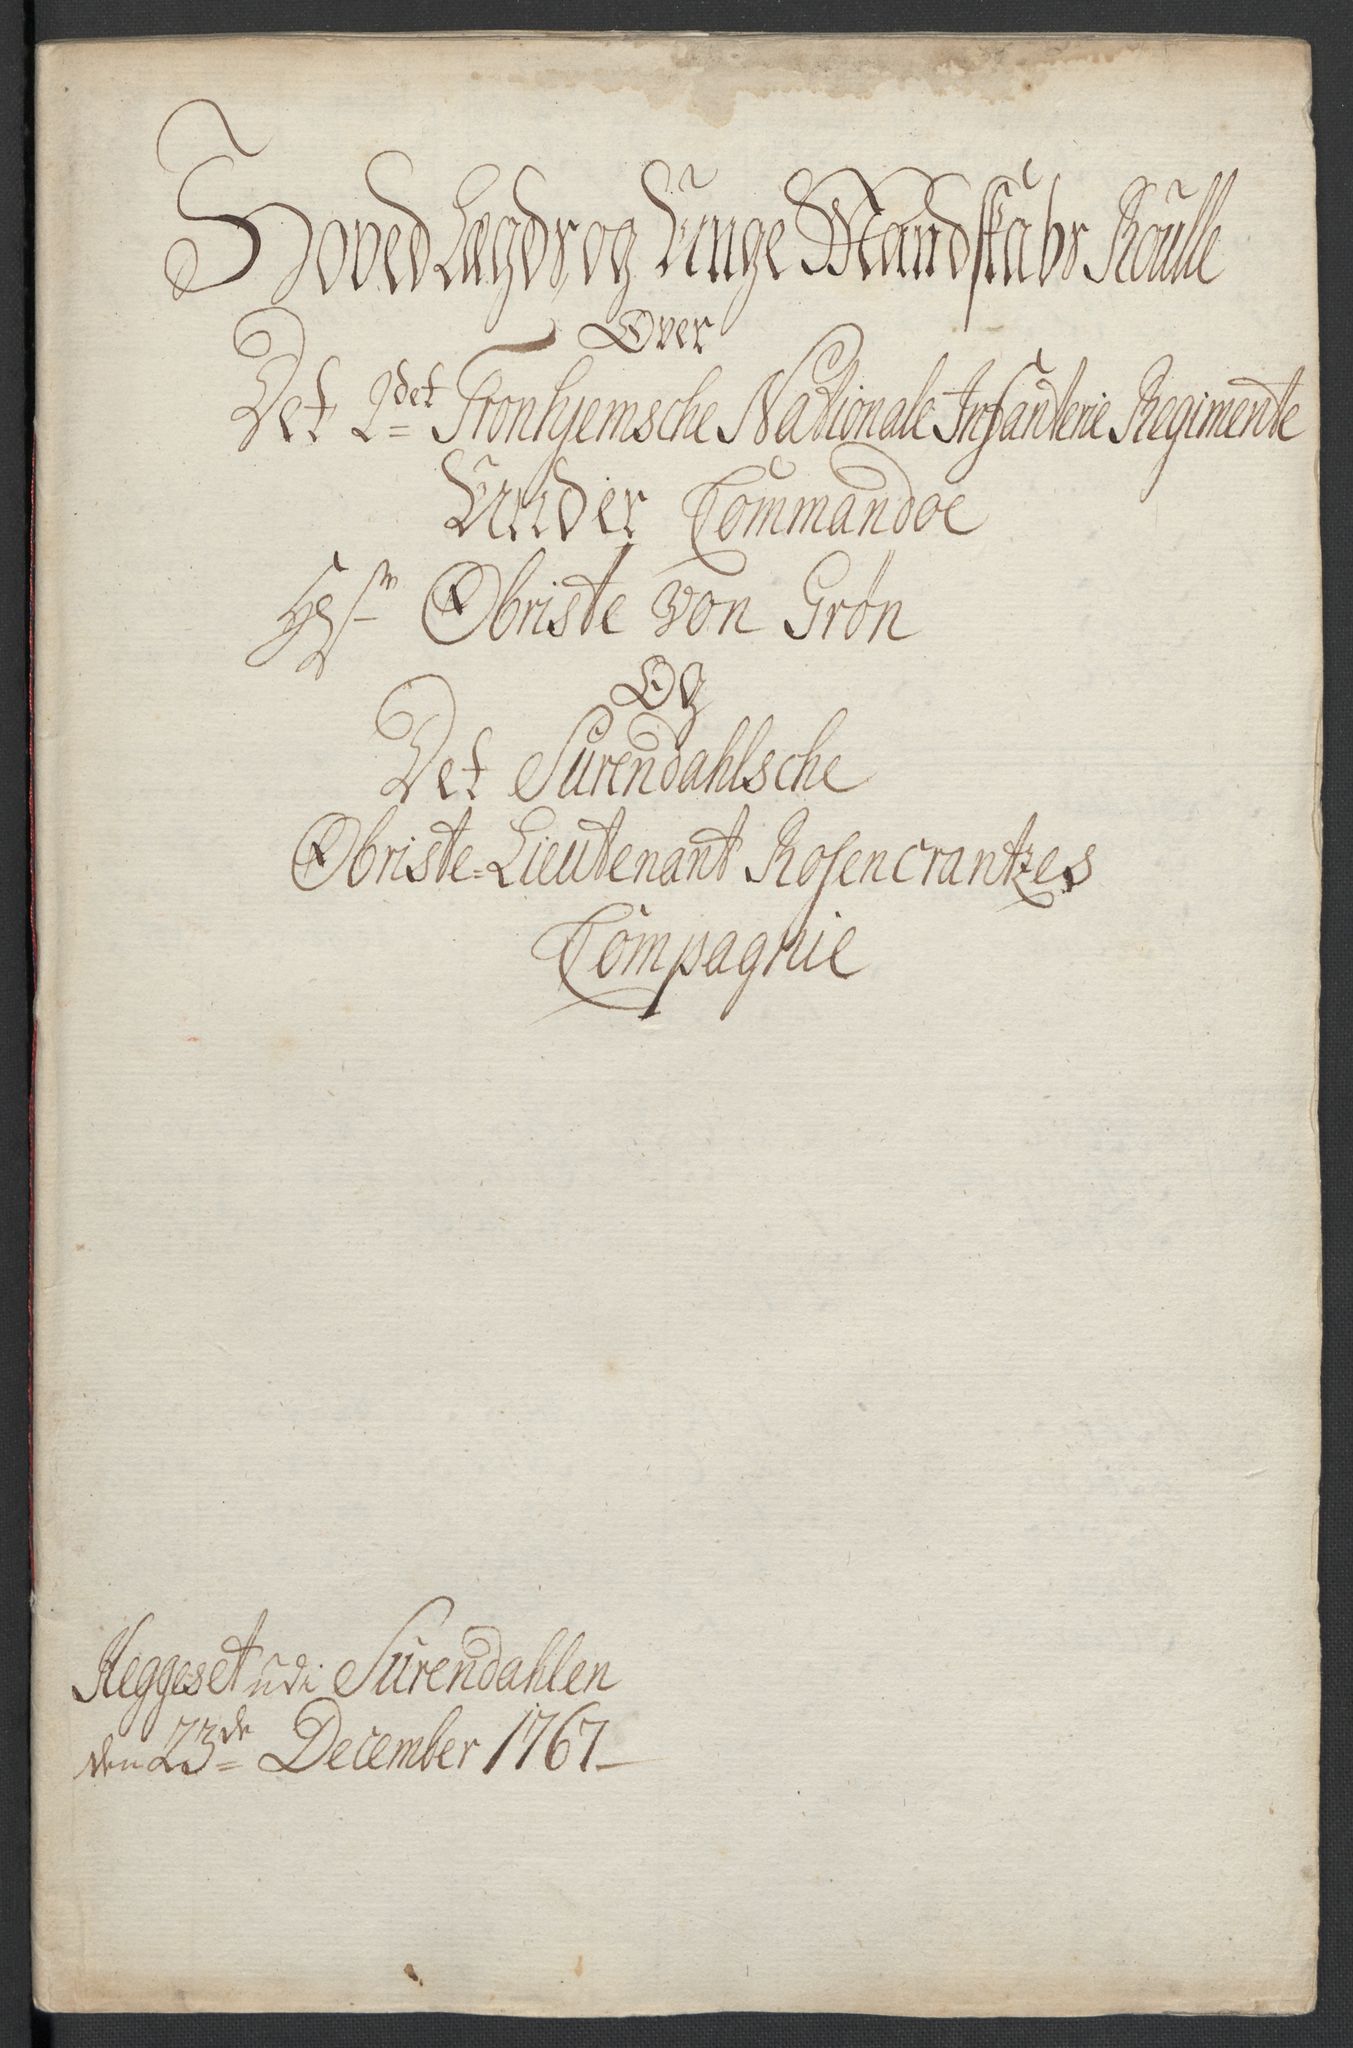 Hoved Lægds og Unge Mandskabs Roulle
Over
Det 2det Tronhjemsche Nationale Infanterie Regimente
Under Commandoe
Hr Obriste von Grøn
Og
Det Surendahlsche
Obriste-Lieutenant Rosencrantzes
Compagnie
Heggeset udi Surendahlen
den 23de December 1767